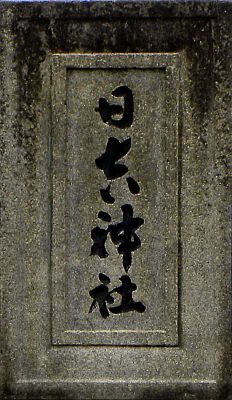 日吉神社